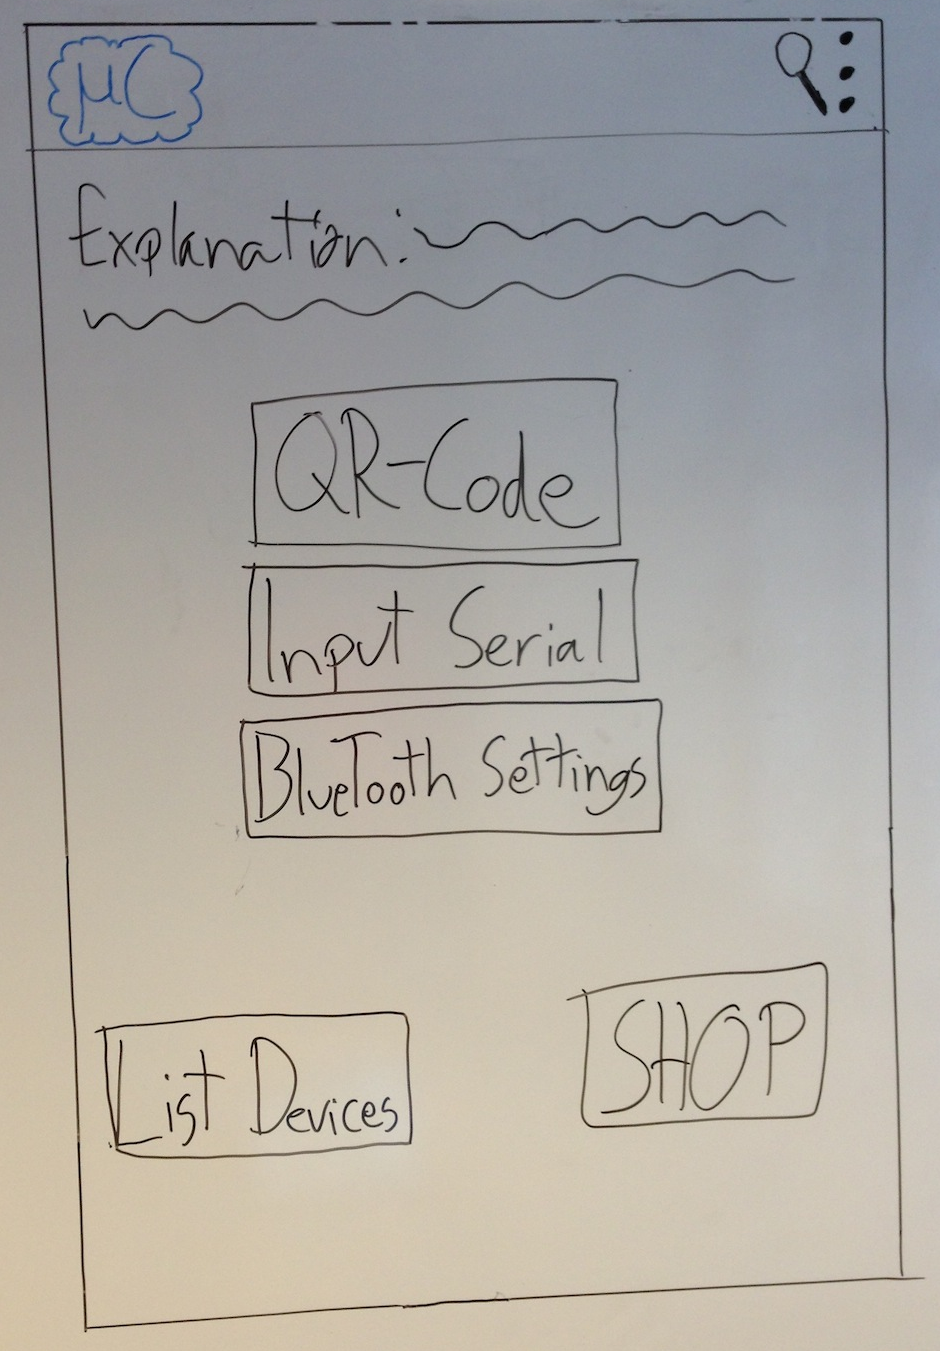 μC
Explanation:
QR-Code
Input Serial
BlueTooth Settings
List Devices
SHOP